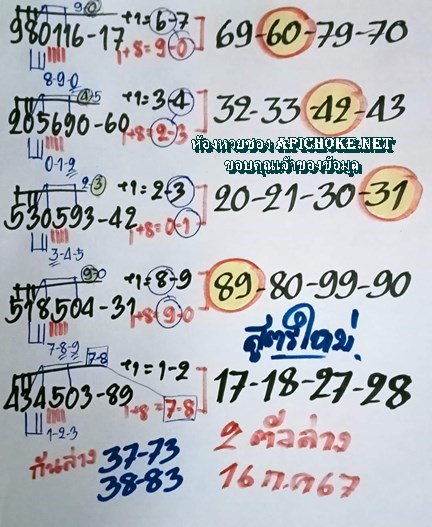 9-0
+1=6-7
980116-17
1+8=9-0
69-60-79-70
8-9-0
4-5
+1=3-4
205690-60
+8=2-3
32-33-42-43
ห้องหวยซอง APICHOKE.NET
ขอบคุณเจ้าของข้อมูล
0-1-2
2-3
+1=2-3
530593-42
1+8=0-1
20-21-30-31
3-4-5
9-0
+1=8-9
518504-31
+8=9-0
89-80-99-90
7-8-9
สูตรใหม่
7-8
+1=1-2
434503-89
1+8=7-8
17-18-27-28
1-2-3
กันล่าง 37-73
38-83
2 ตัวล่าง
16 ก.ค 67